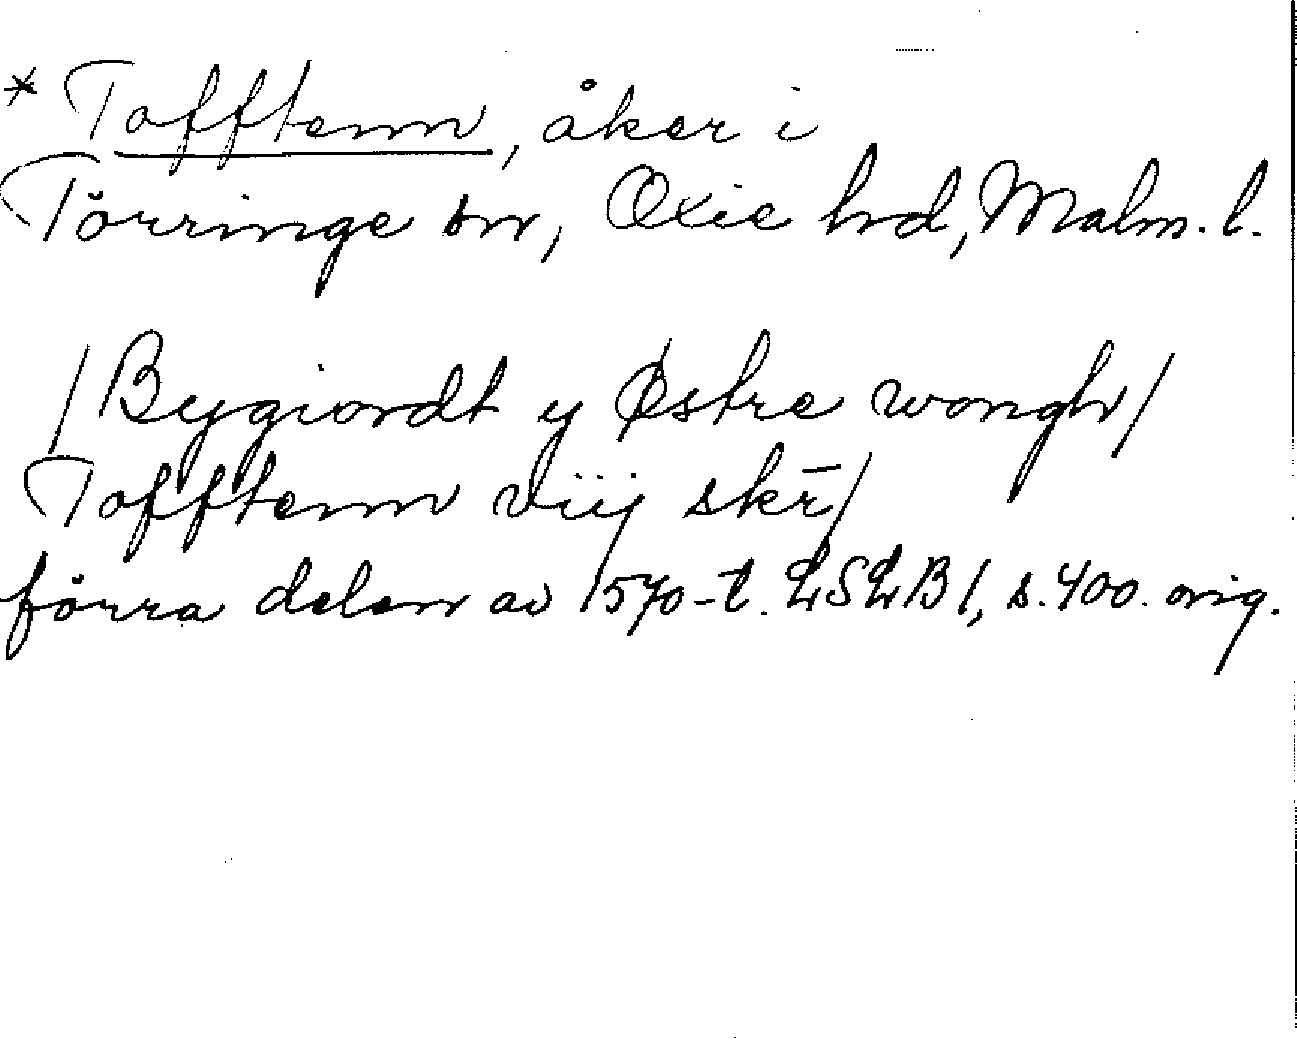 * Tofftenn, åker i
Törringe sn, Oxie hd, Malm. l.
/Bygiordt y Østre wongh/
Tofftenn viij skr̄/
förra delen av 1570-t. LSLB1, s. 400. orig.